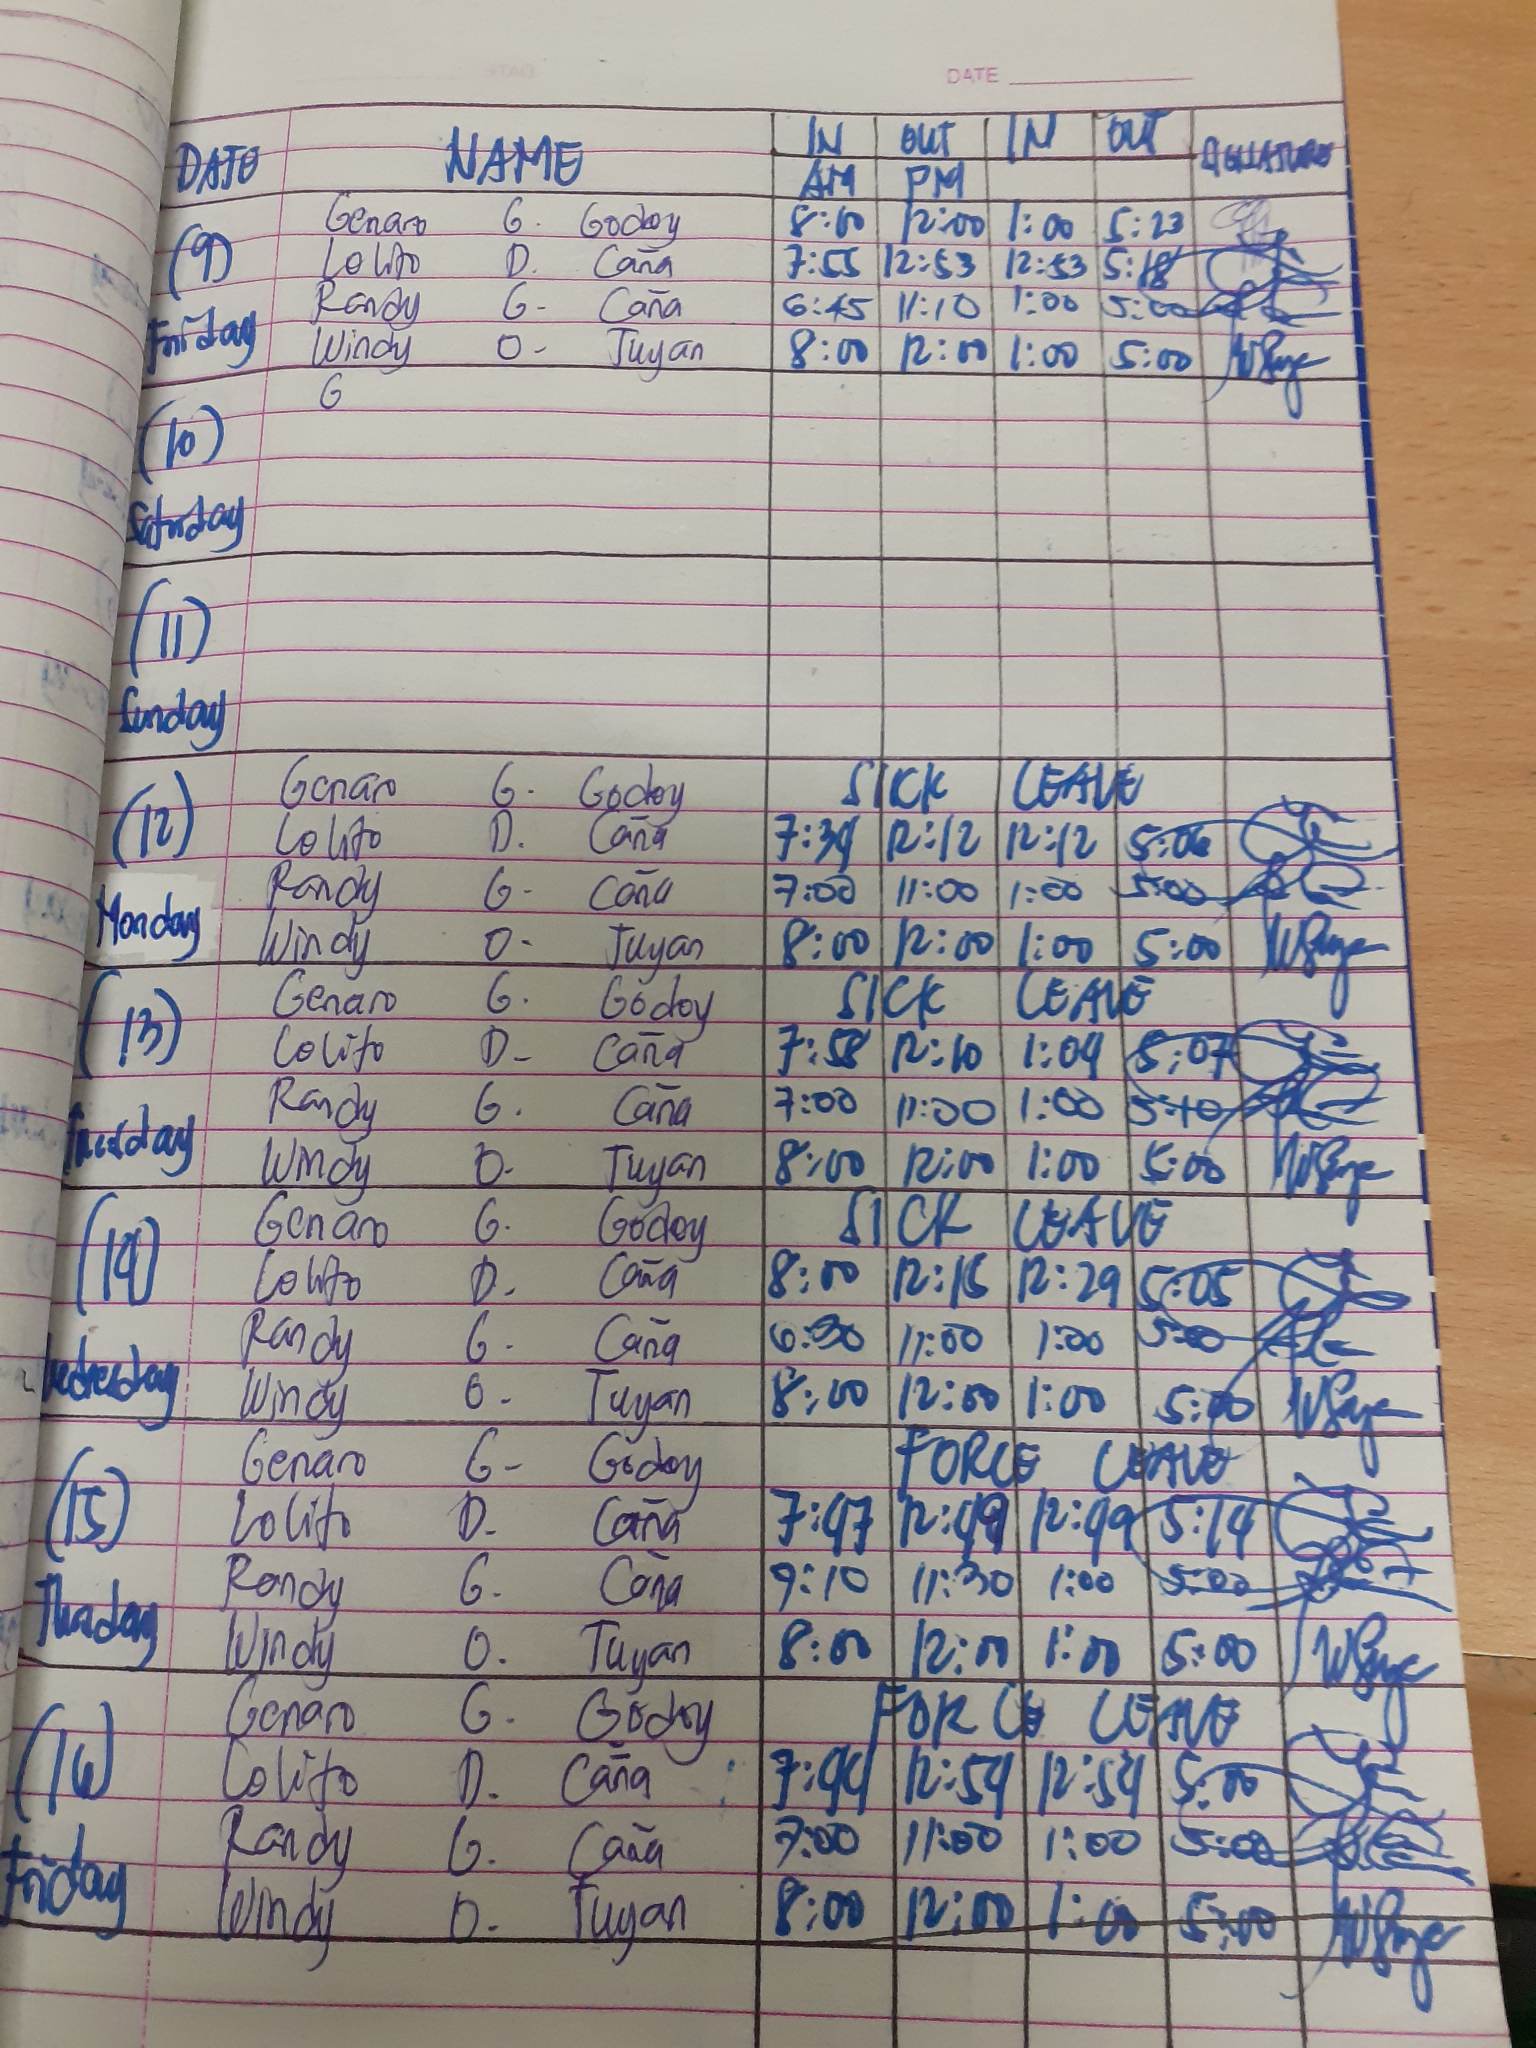 DATE
DATE NAME IN OUT IN OUT SIGNATURE
AM PM
(9) Friday
Genaro G. Godoy 8:00 12:00 1:00 5:23
Lolito D. Caña 7:55 12:53 12:53 5:18
Randy G- Caña 6:45 11:10 1:00 5:00
Windy O- Tuyan 8:00 12:00 1:00 5:00
G
(10) Saturday
(11) Sunday
(12) Monday
Genaro G- Godoy SICK LEAVE
Lolito D. Caña 7:34 12:12 12:12 5:06
Randy G- Caña 7:00 11:00 1:00 5:00
Windy O- Tuyan 8:00 12:00 1:00 5:00
(13) Tuesday
Genaro G. Godoy SICK LEAVE
Lolito D- Caña 7:58 12:10 1:09 5:07
Randy G. Caña 7:00 11:00 1:00 5:10
Windy O- Tuyan 8:00 12:00 1:00 5:00
(14) Wednesday
Genaro G. Godoy SICK LEAVE
Lolito D- Caña 8:00 12:15 12:29 5:05
Randy G- Caña 6:30 11:00 1:00 5:00
Windy O- Tuyan 8:00 12:00 1:00 5:00
(15) Thusday
Genaro G- Godoy FORCE LEAVE
Lolito D- Caña 7:47 12:49 12:49 5:14
Randy G. Caña 9:10 11:30 1:00 5:00
Windy O. Tuyan 8:00 12:00 1:00 5:00
(16) Friday
Genaro G. Godoy FORCE LEAVE
Lolito D. Caña 7:44 12:54 12:54 5:00
Randy G. Caña 7:00 11:00 1:00 5:00
Windy O- Tuyan 8:00 12:00 1:00 5:00